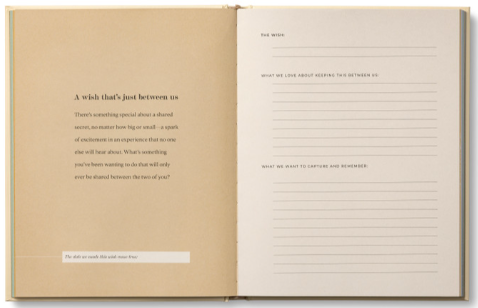 A wish that's just between us
There's something special about a shared
secret, no matter how big or small—a spark
of excitement in an experience that no one
else will hear about. What's something
you've been wanting to do that will only
ever be shared between the two of you?
The date we made this wish come true:
THE WISH:
WHAT WE LOVE ABOUT KEEPING THIS BETWEEN US:
WHAT WE WANT TO CAPTURE AND REMEMBER: